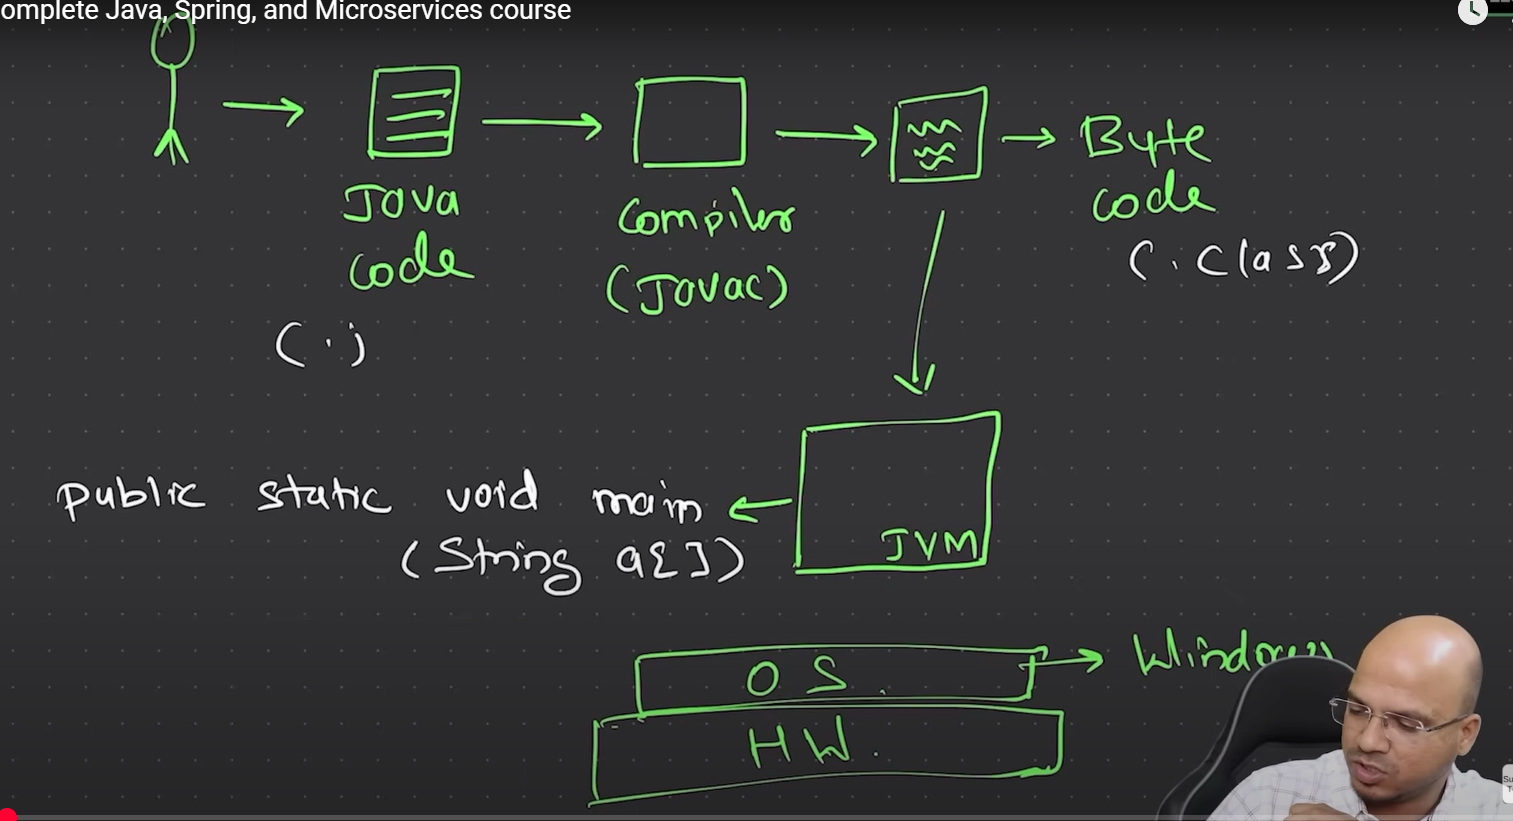 omplete Java, Spring, and Microservices course
Java
code
(.j
Compiler
(Javac)
Byte
code
(.class)
public static void main
(String a[])
JVM
OS
HW.